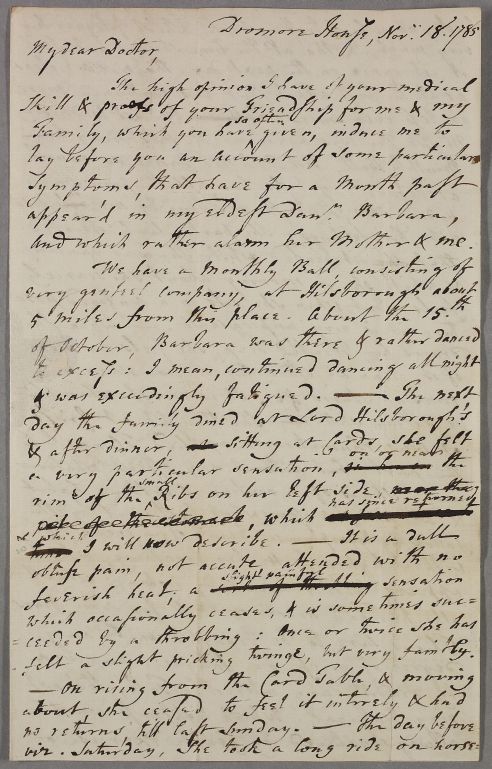 Dromore House, Novr. 18. 1785
My dear Doctor
The high opinion I have of your medical
Skill & proofs of your Friendship for me & my
so often
Family, which you have given, induce me to
lay before you an account of some particular
Symptoms, that have for a Month past
appear'd in my Eldest Daur. Barbara,
and which rather alarm her Mother & me.
We have a Monthly Ball, consisting of
very genteel company, at Hilsborough about
5 miles from this place. About the 15.th
of October, Barbara was there & rather danced
to excess: I mean, continued dancing all night
& was exceedingly fatigued. — The next
day the family dined at Lord Hilsborough's
& after dinner, sitting at Cards, she felt
on or near
a very particular sensation, the
small
rim of the Ribs on her left side,
has since returned
, which
& which
I will now describe. — It is a dull
obtuse pain, not acute, attended with no
slight painful
feverish heat; a sensation
which occasionally ceases, & is sometimes suc=
=ceeded by a throbbing: Once or twice she has
felt a slight pricking twinge, but very faintly.
— On rising from the Card Table, & moving
about, she ceased to feel it intirely & had
no returns till last Sunday. — The day before
viz. Saturday, She took a long ride on horse=